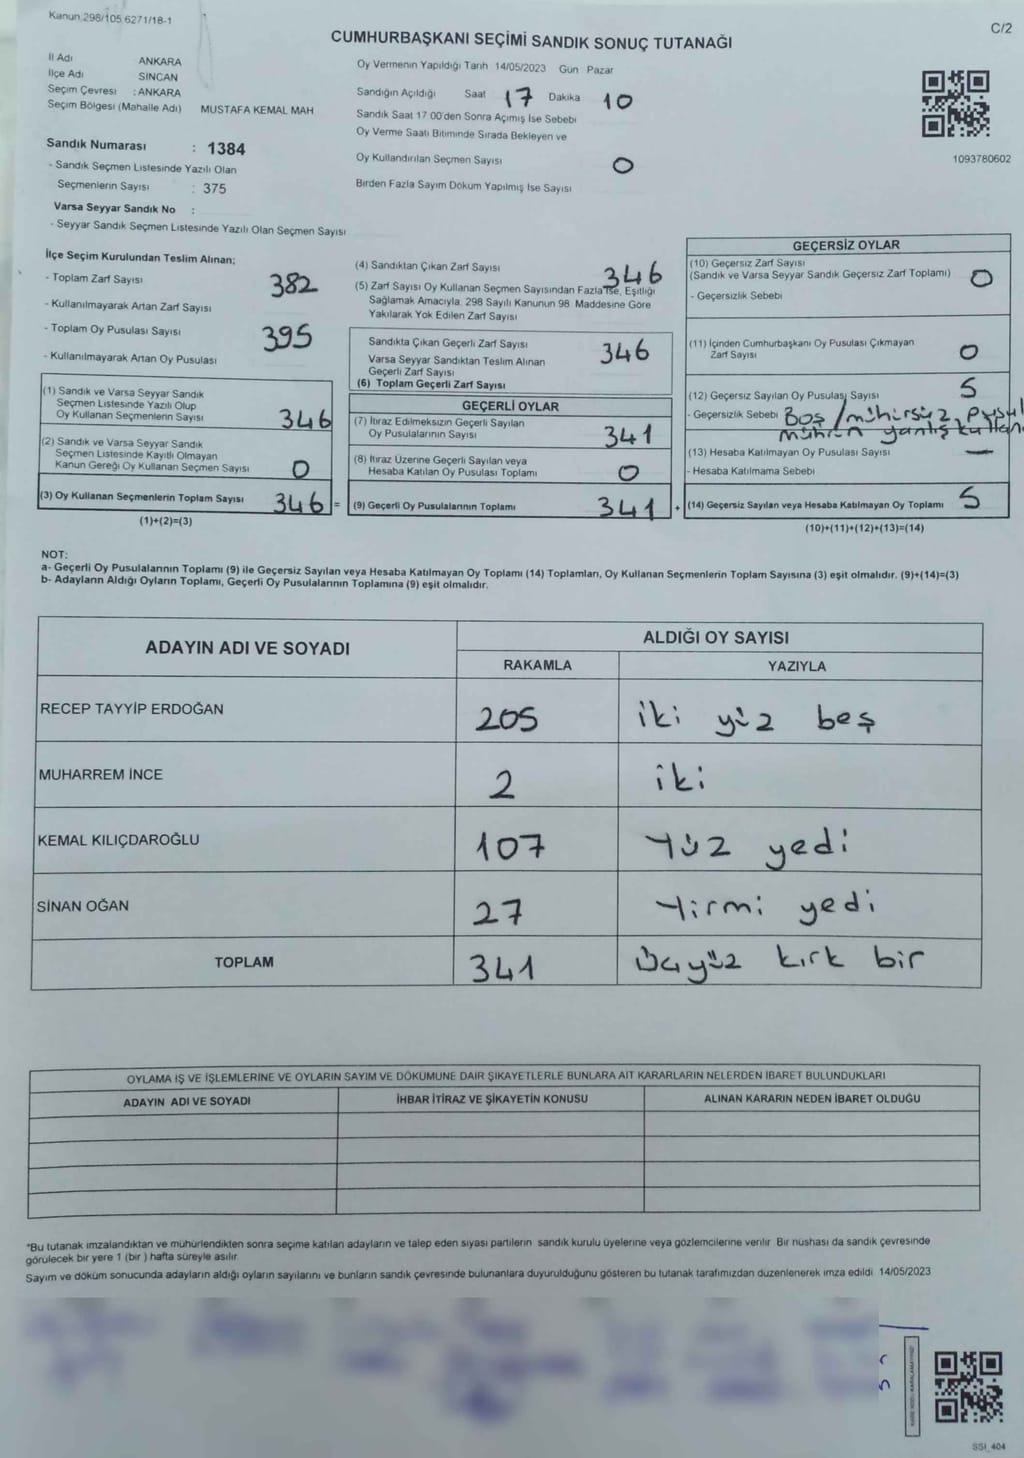 Kanun 298/105 6271/18-1
C/2
CUMHURBAŞKANI SEÇİMİ SANDIK SONUÇ TUTANAĞI
İl Adı ANKARA
İlçe Adı SİNCAN
Seçim Çevresi : ANKARA
Seçim Bölgesi (Mahalle Adı) MUSTAFA KEMAL MAH
Sandık Numarası : 1384
- Sandık Seçmen Listesinde Yazılı Olan
Seçmenlerin Sayısı : 375
Varsa Seyyar Sandık No :
- Seyyar Sandık Seçmen Listesinde Yazılı Olan Seçmen Sayısı
Oy Vermenin Yapıldığı Tarih 14/05/2023 Gün Pazar
Sandığın Açıldığı Saat 17 Dakika 10
Sandık Saat 17 00'den Sonra Açımış İse Sebebi
Oy Verme Saati Bitiminde Sırada Bekleyen ve
Oy Kullandırılan Seçmen Sayısı 0
Birden Fazla Sayım Döküm Yapılmış İse Sayısı
1093780602
İlçe Seçim Kurulundan Teslim Alınan;
- Toplam Zarf Sayısı 382
- Kullanılmayarak Artan Zarf Sayısı
- Toplam Oy Pusulası Sayısı 395
- Kullanılmayarak Artan Oy Pusulası
(1) Sandık ve Varsa Seyyar Sandık
Seçmen Listesinde Yazılı Olup
Oy Kullanan Seçmenlerin Sayısı 346
(2) Sandık ve Varsa Seyyar Sandık
Seçmen Listesinde Kayıtlı Olmayan
Kanun Gereği Oy Kullanan Seçmen Sayısı 0
(3) Oy Kullanan Seçmenlerin Toplam Sayısı 346 =
(1)+(2)=(3)
(4) Sandıktan Çıkan Zarf Sayısı 346
(5) Zarf Sayısı Oy Kullanan Seçmen Sayısından Fazla İse, Eşitliği
Sağlamak Amacıyla 298 Sayılı Kanunun 98 Maddesine Göre
Yakılarak Yok Edilen Zarf Sayısı
Sandıkta Çıkan Geçerli Zarf Sayısı 346
Varsa Seyyar Sandıktan Teslim Alınan
Geçerli Zarf Sayısı
(6) Toplam Geçerli Zarf Sayısı
GEÇERLİ OYLAR
(7) İtiraz Edilmeksizin Geçerli Sayılan
Oy Pusulalarının Sayısı 341
(8) İtiraz Üzerine Geçerli Sayılan veya
Hesaba Katılan Oy Pusulası Toplamı 0
(9) Geçerli Oy Pusulalarının Toplamı 341 +
GEÇERSİZ OYLAR
(10) Geçersiz Zarf Sayısı
(Sandık ve Varsa Seyyar Sandık Geçersiz Zarf Toplamı) 0
- Geçersizlik Sebebi
(11) İçinden Cumhurbaşkanı Oy Pusulası Çıkmayan
Zarf Sayısı 0
(12) Geçersiz Sayılan Oy Pusulası Sayısı 5
- Geçersizlik Sebebi Boş / mühürsüz, pusul
mührün yanlış kullan
(13) Hesaba Katılmayan Oy Pusulası Sayısı —
- Hesaba Katılmama Sebebi
(14) Geçersiz Sayılan veya Hesaba Katılmayan Oy Toplamı 5
(10)+(11)+(12)+(13)=(14)
NOT:
a- Geçerli Oy Pusulalarının Toplamı (9) ile Geçersiz Sayılan veya Hesaba Katılmayan Oy Toplamı (14) Toplamları, Oy Kullanan Seçmenlerin Toplam Sayısına (3) eşit olmalıdır. (9)+(14)=(3)
b- Adayların Aldığı Oyların Toplamı, Geçerli Oy Pusulalarının Toplamına (9) eşit olmalıdır.
ADAYIN ADI VE SOYADI
ALDIĞI OY SAYISI
RAKAMLA YAZIYLA
RECEP TAYYİP ERDOĞAN 205 iki yüz beş
MUHARREM İNCE 2 iki
KEMAL KILIÇDAROĞLU 107 Yüz yedi
SİNAN OĞAN 27 Yirmi yedi
TOPLAM 341 Üçyüz kırk bir
OYLAMA İŞ VE İŞLEMLERİNE VE OYLARIN SAYIM VE DÖKÜMÜNE DAİR ŞİKAYETLERLE BUNLARA AİT KARARLARIN NELERDEN İBARET BULUNDUKLARI
ADAYIN ADI VE SOYADI İHBAR İTİRAZ VE ŞİKAYETİN KONUSU ALINAN KARARIN NEDEN İBARET OLDUĞU
*Bu tutanak imzalandıktan ve mühürlendikten sonra seçime katılan adayların ve talep eden siyasi partilerin sandık kurulu üyelerine veya gözlemcilerine verilir Bir nüshası da sandık çevresinde
görülecek bir yere 1 (bir ) hafta süreyle asılır
Sayım ve döküm sonucunda adayların aldığı oyların sayılarını ve bunların sandık çevresinde bulunanlara duyurulduğunu gösteren bu tutanak tarafımızdan düzenlenerek imza edildi 14/05/2023
SSI_404